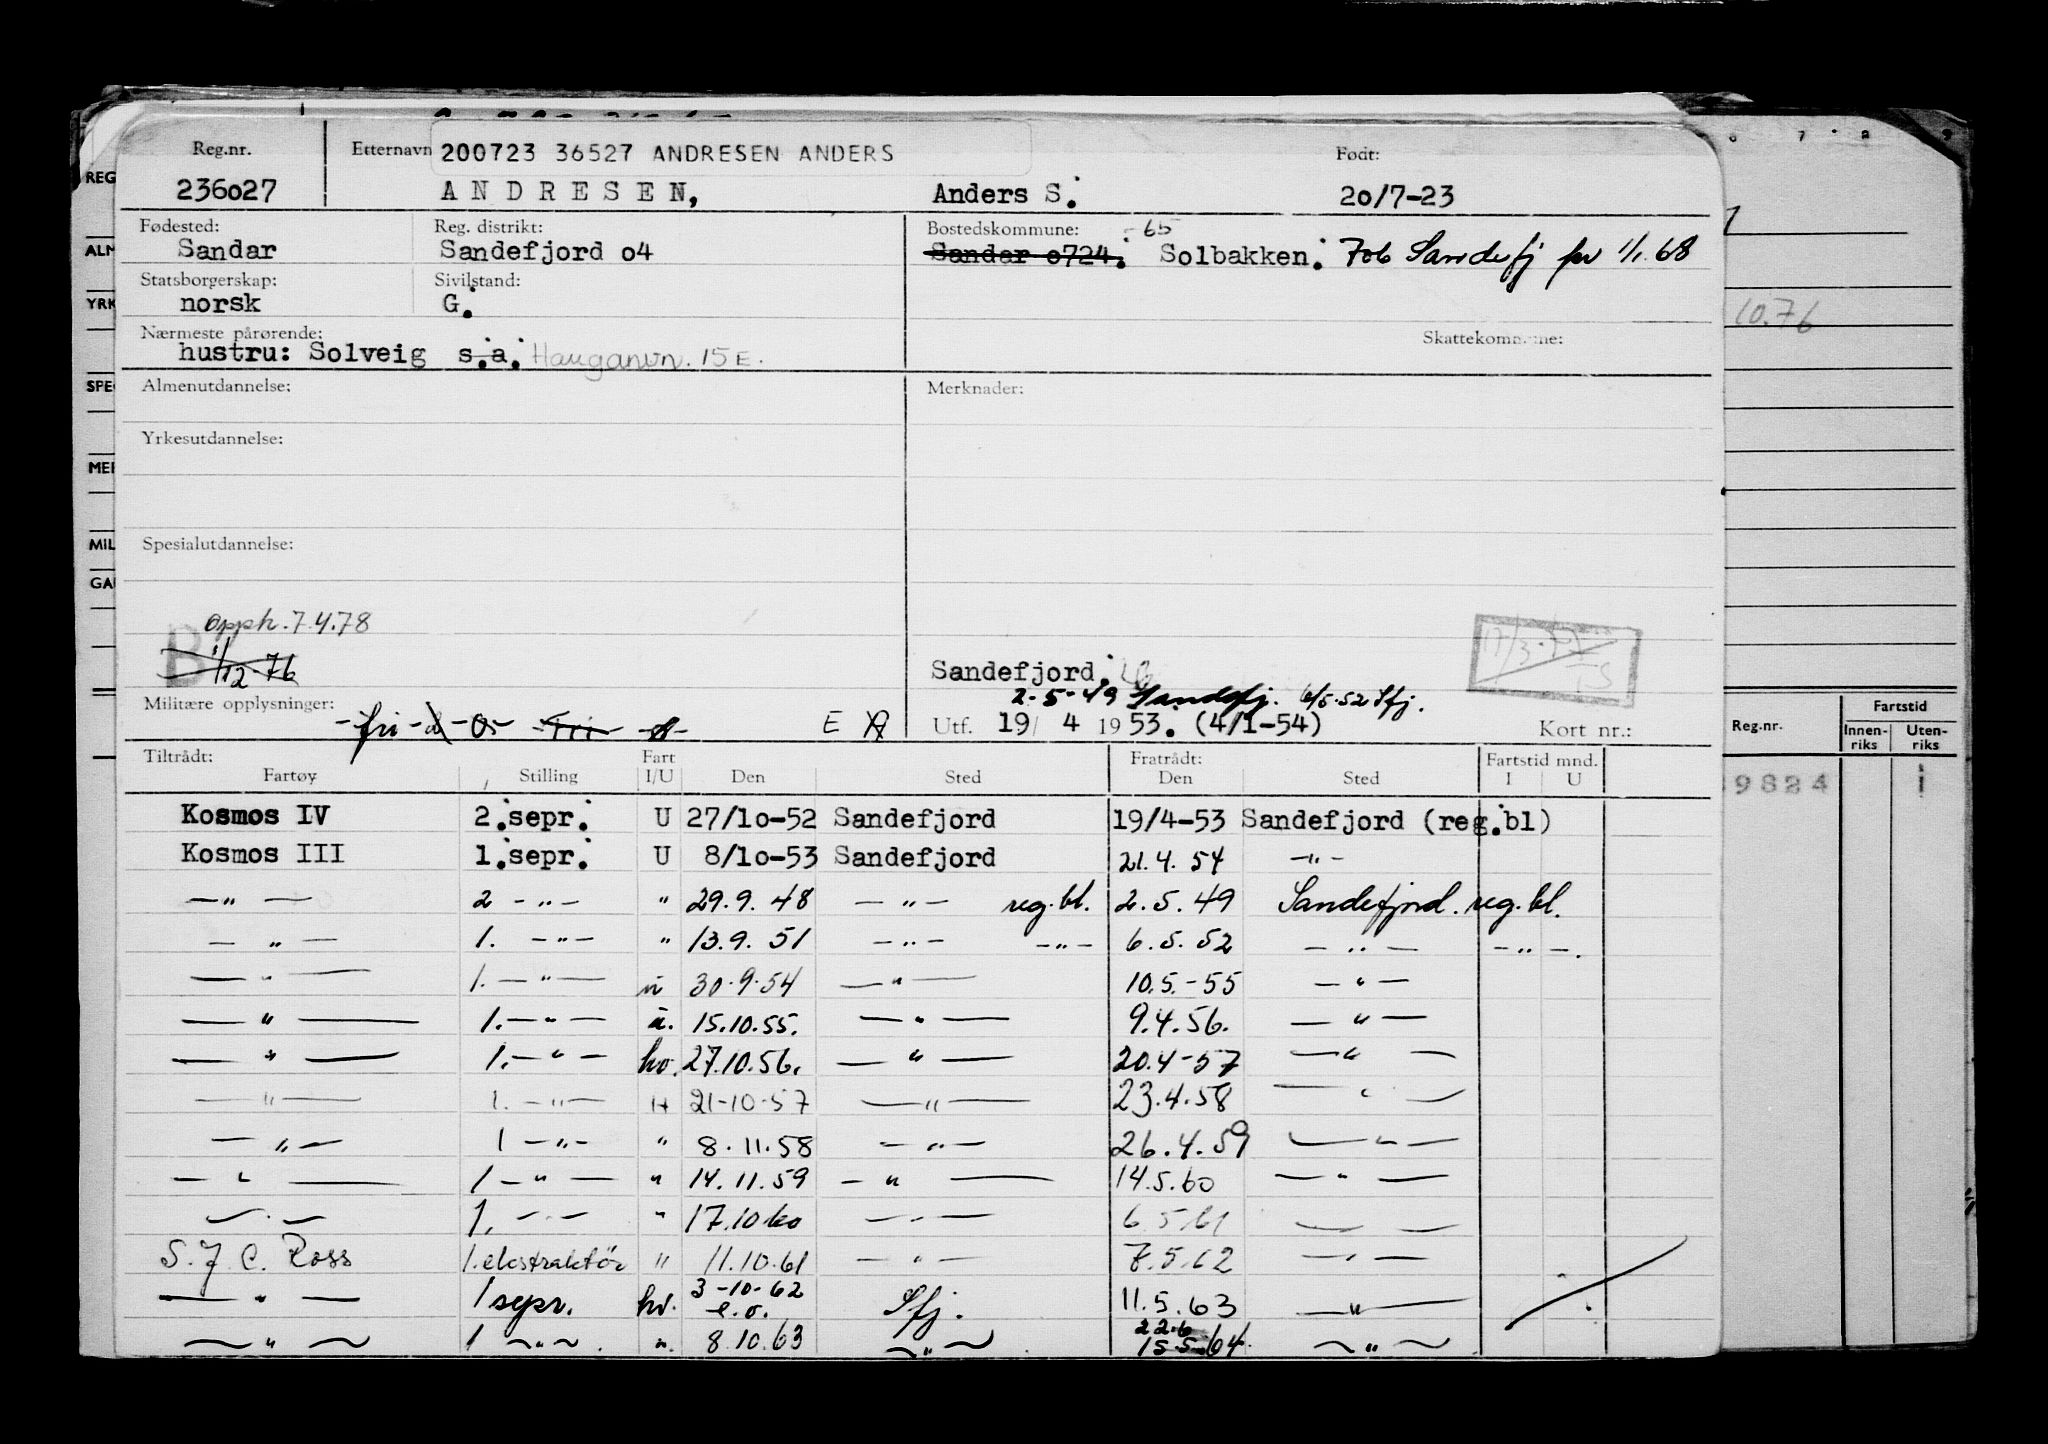 Reg.nr. Etternavn 200723 36527 ANDRESEN ANDERS Født:
236027 ANDRESEN, Anders S. 20/7-23
Fødested: Reg. distrikt: Bostedskommune: -65
Sandar Sandefjord 04 Sandar 0724. Solbakken. 706 Sandefj pr 1/1.68
Statsborgerskap: Sivilstand:
norsk G.
Nærmeste pårørende: Skattekommune:
hustru: Solveig s.a. Hauganvn. 15 E.
Almenutdannelse: Merknader:
Yrkesutdannelse:
Spesialutdannelse:
opph. 7.4.78
B
1/12-76
Sandefjord.
2-5-49 Sandefj. 6/5-52 Sfj.
Militære opplysninger: -fri- E Utf. 19/ 4 1953. (4/1-54) Kort nr.:
Tiltrådt: Fart Fratrådt: Fartstid mnd.
Fartøy Stilling I/U Den Sted Den Sted I U
Kosmos IV 2.sepr. U 27/10-52 Sandefjord 19/4-53 Sandefjord (reg.bl)
Kosmos III 1.sepr. U 8/10-53 Sandefjord 21.4.54 -"-
-"- 2 -"- " 29.9.48 -"- reg.bl. 2.5.49 Sandefjord. reg.bl.
-"- 1. -"- " 13.9.51 -"- -"- 6.5.52 -"- -"-.
-"- 1. -"- u 30.9.54 -"- 10.5.-55 -"-
-"- 1. -"- u. 15.10.55. -"- 9.4.56. -"-
-"- 1. -"- hv. 27.10.56. -"- 20.4-57 -"-
-"- 1. -"- H 21-10-57 -"- 23.4.58 -"-
-"- 1 -"- " 8.11.58 -"- 26.4.59 -"-
-"- 1 -"- " 14.11.59 -"- 14.5.60 -"-
-"- 1. -"- " 17.10.60 -"- 6.5.61 -"-
S. J. C. Ross 1.ekstraktör " 11.10.61 -"- 7.5.62 -"-
-"- 1 sepr. hv. 3-10-62 e.o. Sfj. 11.5.63 -"-
-"- 1 -"-. ". 8.10.63 -"- 22.6 15.5.64. -"-
REG
ALM
YRK
SPE
MER
MIL
GA
10.76
Reg.nr. Fartstid
Innen-riks Uten-riks
9824 1